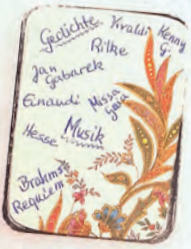 Gedichte
Vivaldi
Kenny
G.
Rilke
Jan
Gabarek
Einaudi
Missa
Hesse
Musik
Brahms
Requiem